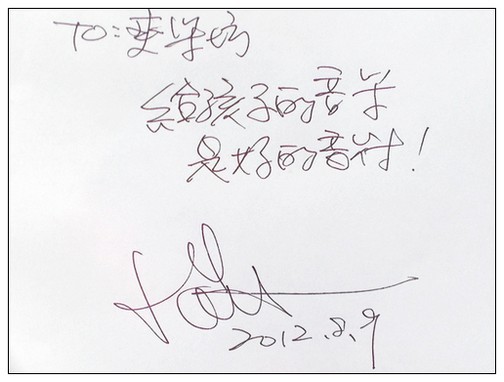 TO:
给孩子的音乐
是好的音符!
2012.8.9